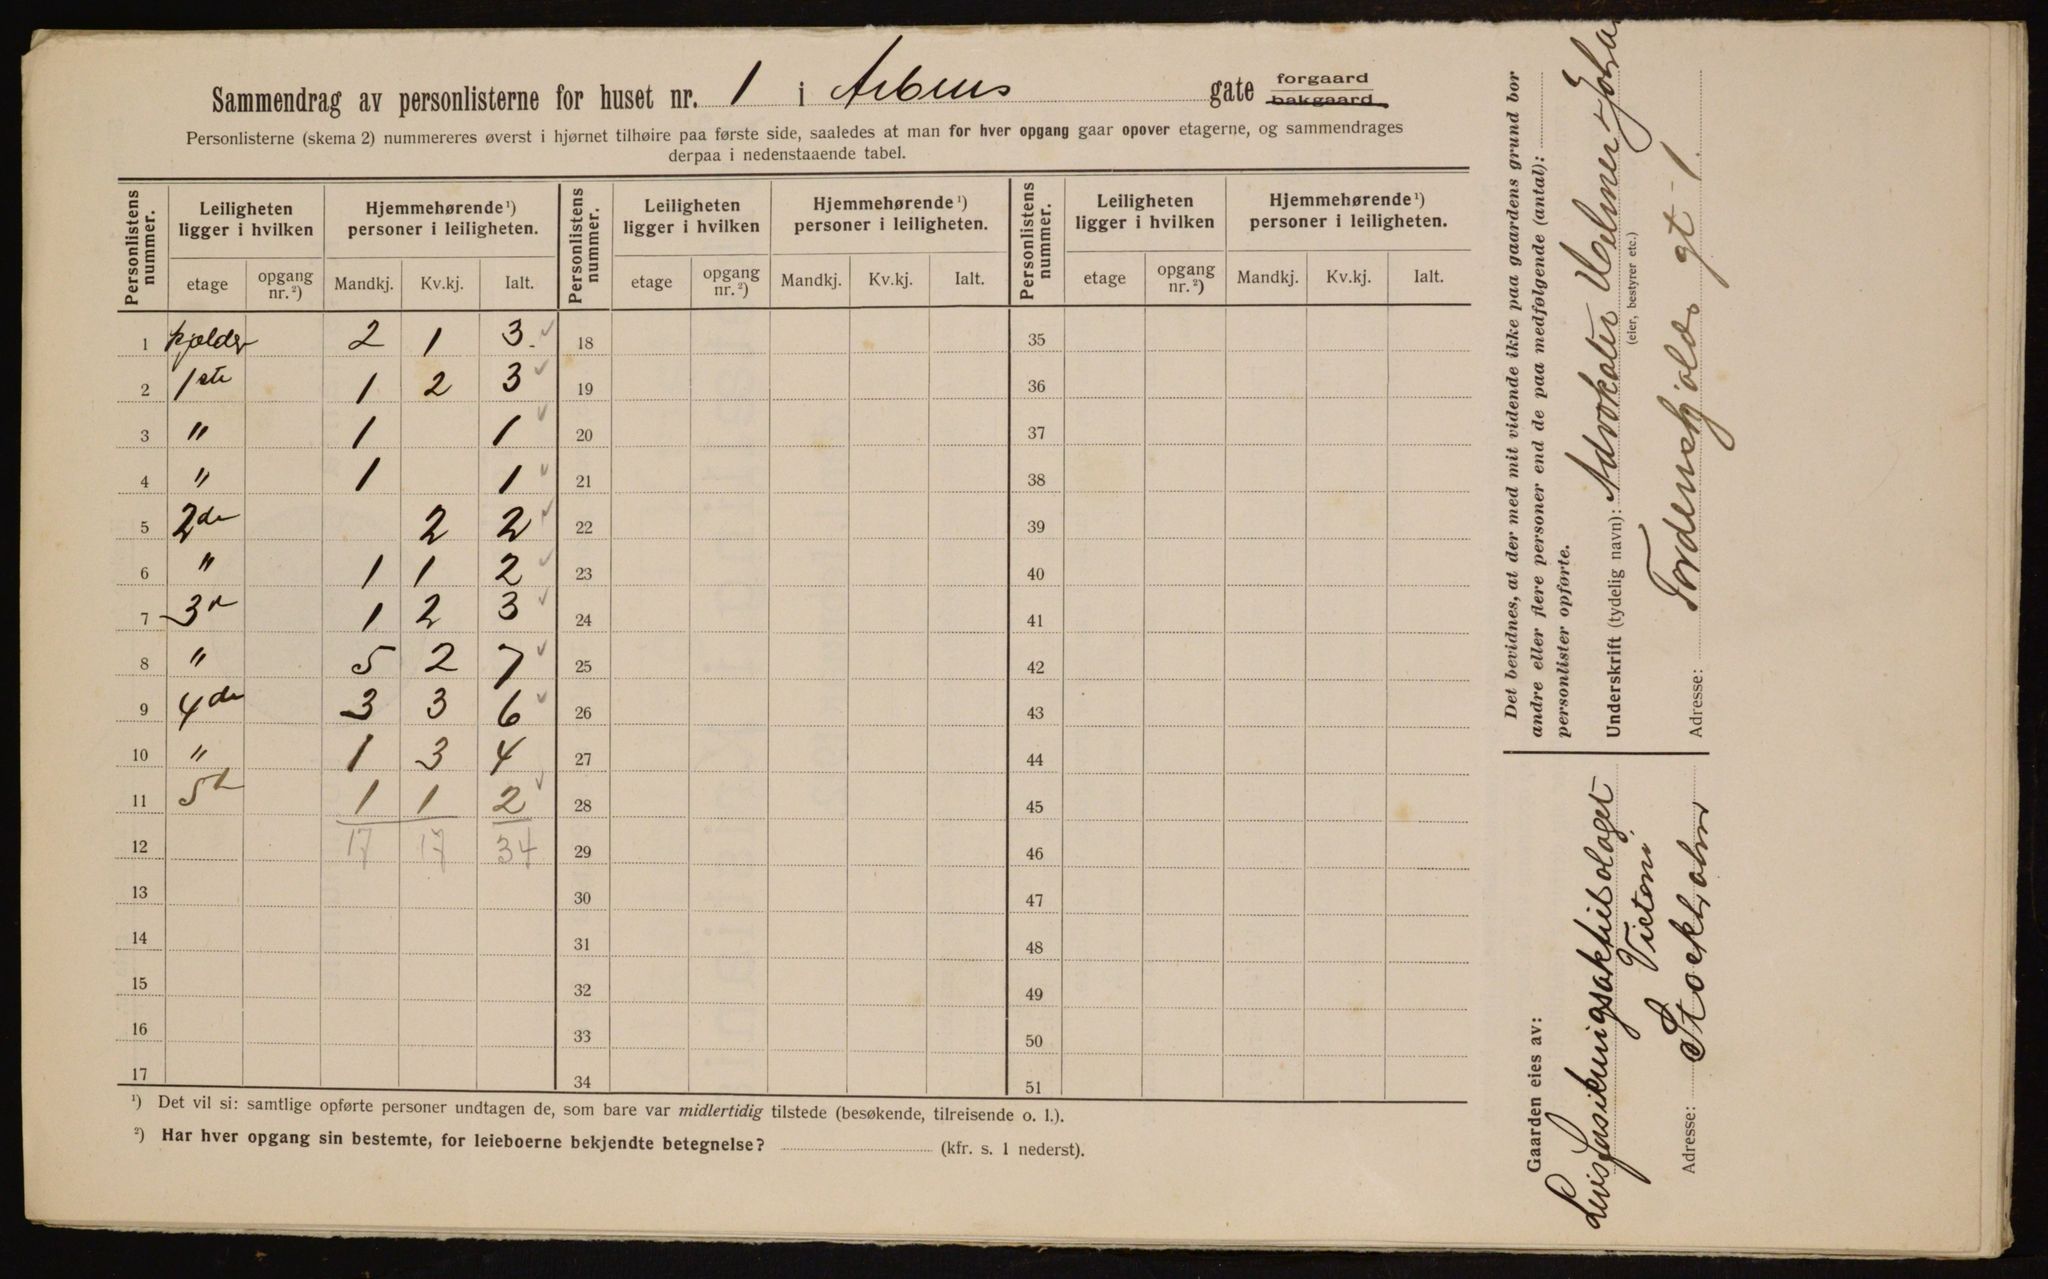 Sammendrag av personlisterne for huset nr. 1 i Arbins gate forgaard bakgaard
Personlisterne (skema 2) nummereres øverst i hjørnet tilhøire paa første side, saaledes at man for hver opgang gaar opover etagerne, og sammendrages
derpaa i nedenstaaende tabel.
Personlistens nummer. Leiligheten ligger i hvilken Hjemmehørende ¹) personer i leiligheten. Personlistens nummer. Leiligheten ligger i hvilken Hjemmehørende ¹) personer i leiligheten. Personlistens nummer. Leiligheten ligger i hvilken Hjemmehørende ¹) personer i leiligheten.
etage opgang nr. ²) Mandkj. Kv.kj. Ialt. etage opgang nr. ²) Mandkj. Kv.kj. Ialt. etage opgang nr. ²) Mandkj. Kv.kj. Ialt.
1 kjelder 2 1 3 18 35
2 1ste 1 2 3 19 36
3 " 1 1 20 37
4 " 1 1 21 38
5 2de 2 2 22 39
6 " 1 1 2 23 40
7 3d 1 2 3 24 41
8 " 5 2 7 25 42
9 4de 3 3 6 26 43
10 " 1 3 4 27 44
11 5t 1 1 2 28 45
12 17 17 34 29 46
13 30 47
14 31 48
15 32 49
16 33 50
17 34 51
¹) Det vil si: samtlige opførte personer undtagen de, som bare var midlertidig tilstede (besøkende, tilreisende o. l.).
²) Har hver opgang sin bestemte, for leieboerne bekjendte betegnelse? (kfr. s. 1 nederst).
Det bevidnes, at der med mit vidende ikke paa gaardens grund bor
andre eller flere personer end de paa medfølgende (antal):
personlister opførte.
Underskrift (tydelig navn): Advokater
(eier, bestyrer etc.)
Adresse: Tordenskjolds gt 1.
Gaarden eies av:
Livsforsikringsaktiebolaget
Victoria
Adresse: Stockholm